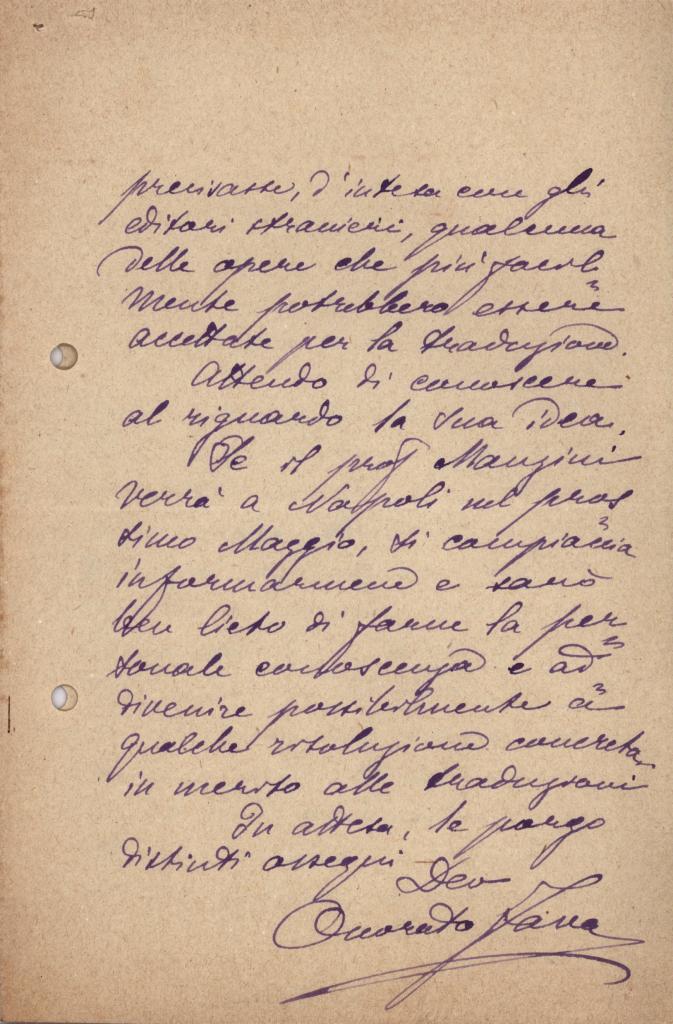 precisasse, d'intesa con gli
editori stranieri, qualcuna
delle opere che più facil
mente potrebbero essere
accettate per la traduzione.
Attendo di conoscere
al riguardo la Sua idea.
Se il prof Manzini
verrà a Napoli nel pros
simo Maggio, si compiaccia
informarmene e sarò
ben lieto di farne la per
sonale conoscenza e ad
divenire possibilmente a
qualche risoluzione concreta
in merito alle traduzioni
In attesa, le porgo
distinti ossequi
Dev
Onorato Fava